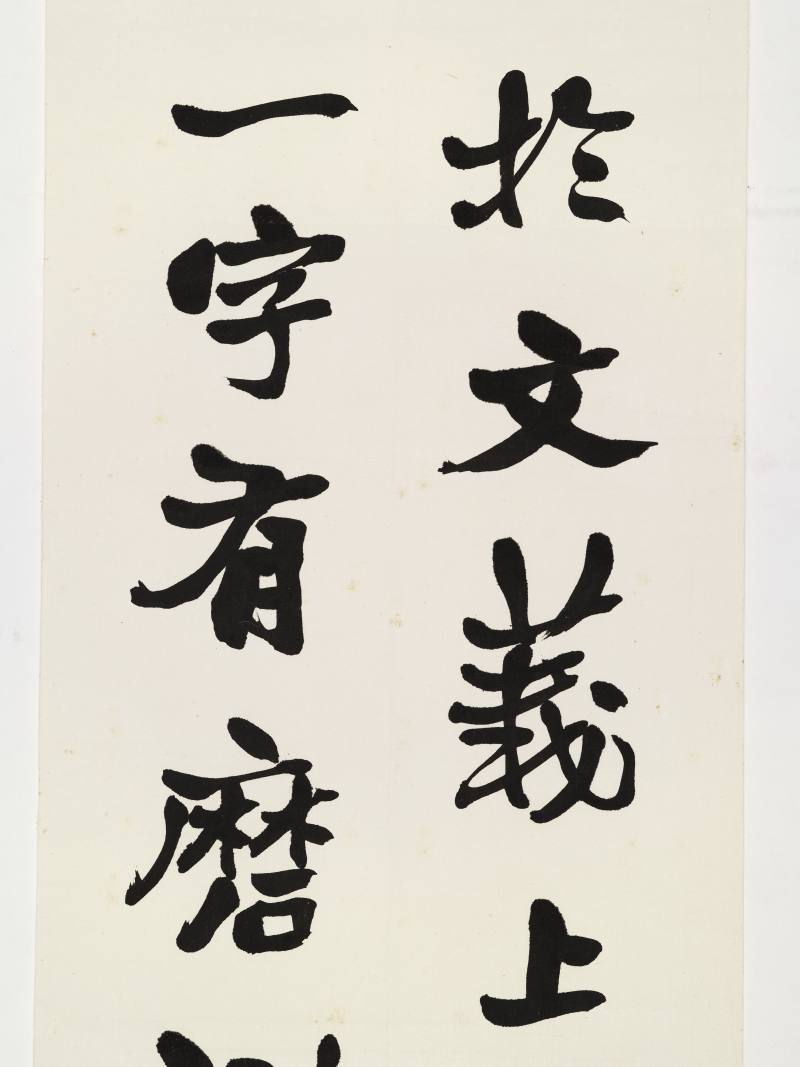 於文義上
一字有磨